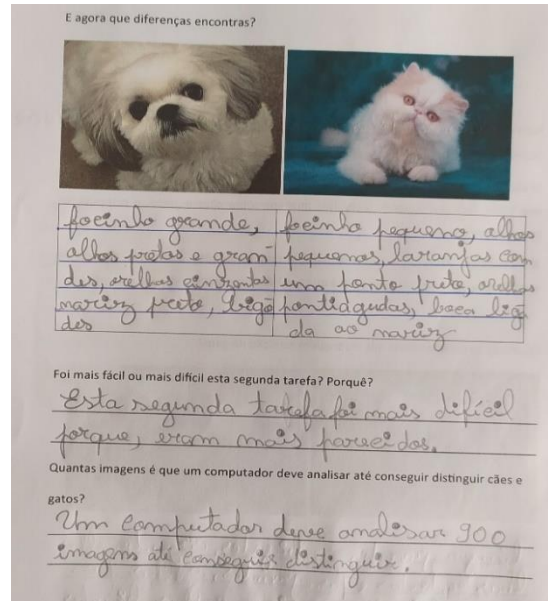 E agora que diferenças encontras?
focinho grande,
olhos pretos e gran
des, orelhas cinzentas
nariz preto, bigo
des
focinho pequeno, olhos
pequenos, laranjas com
um ponto preto, orelhas
pontiagudas, boca liga
da ao nariz
Foi mais fácil ou mais difícil esta segunda tarefa? Porquê?
Esta segunda tarefa foi mais difícil
porque, eram mais parecidos.
Quantas imagens é que um computador deve analisar até conseguir distinguir cães e
gatos?
Um computador deve analisar 900
imagens até conseguir distinguir.